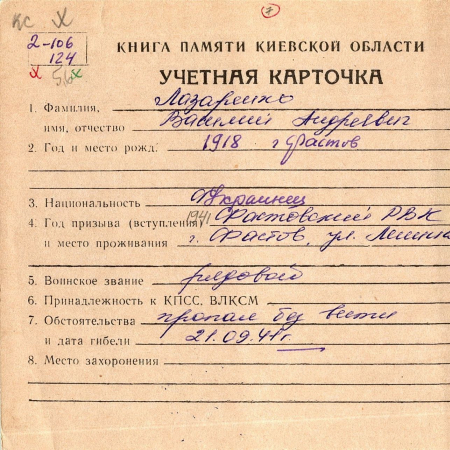 КС X
7
2-106
124
X 56 X
КНИГА ПАМЯТИ КИЕВСКОЙ ОБЛАСТИ
УЧЕТНАЯ КАРТОЧКА
1. Фамилия, Лазаренко
имя, отчество Василий Андреевич
2. Год и место рожд. 1918 г Фастов
3. Национальность Украинец
4. Год призыва (вступления) 1941 Фастовский РВК
и место проживания г. Фастов, ул. Ленина
5. Воинское звание рядовой
6. Принадлежность к КПСС, ВЛКСМ
7. Обстоятельства пропал без вести
и дата гибели 21.09.41г.
8. Место захоронения